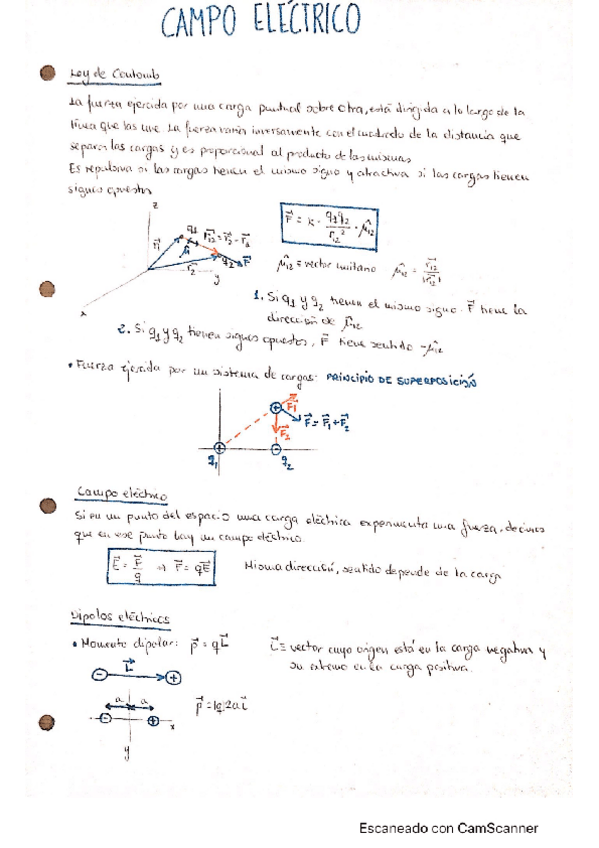 CAMPO ELÉCTRICO
Ley de Coulomb
La fuerza ejercida por una carga puntual sobre otra, está dirigida a lo largo de la
línea que las une. La fuerza varía inversamente con el cuadrado de la distancia que
separa las cargas y es proporcional al producto de las mismas
Es repulsiva si las cargas tienen el mismo signo y atractiva si las cargas tienen
signos opuestos
z
q1
r⃗12 = r⃗2 - r⃗1
r⃗1
μ̂
q2 F⃗
r⃗2
y
x
F⃗ = k · q1q2/r12² · μ̂12
μ̂12 = vector unitario μ̂12 = r⃗12/|r⃗12|
1. Si q1 y q2 tienen el mismo signo F⃗ tiene la
dirección de μ̂12
2. Si q1 y q2 tienen signos opuestos, F⃗ tiene sentido -μ̂12
• Fuerza ejercida por un sistema de cargas: PRINCIPIO DE SUPERPOSICIÓN
+ F⃗1
F⃗ = F⃗1 + F⃗2
F⃗2
+ -
q1 q2
Campo eléctrico
Si en un punto del espacio una carga eléctrica experimenta una fuerza, decimos
que en ese punto hay un campo eléctrico.
E⃗ = F⃗/q ⇒ F⃗ = qE⃗
Misma dirección, sentido depende de la carga
Dipolos eléctricos
• Momento dipolar: p⃗ = qL⃗
L⃗ ≡ vector cuyo origen está en la carga negativa y
su extremo en la carga positiva.
L⃗
- +
a a
p⃗ = |q|2a
- + x
y
Escaneado con CamScanner